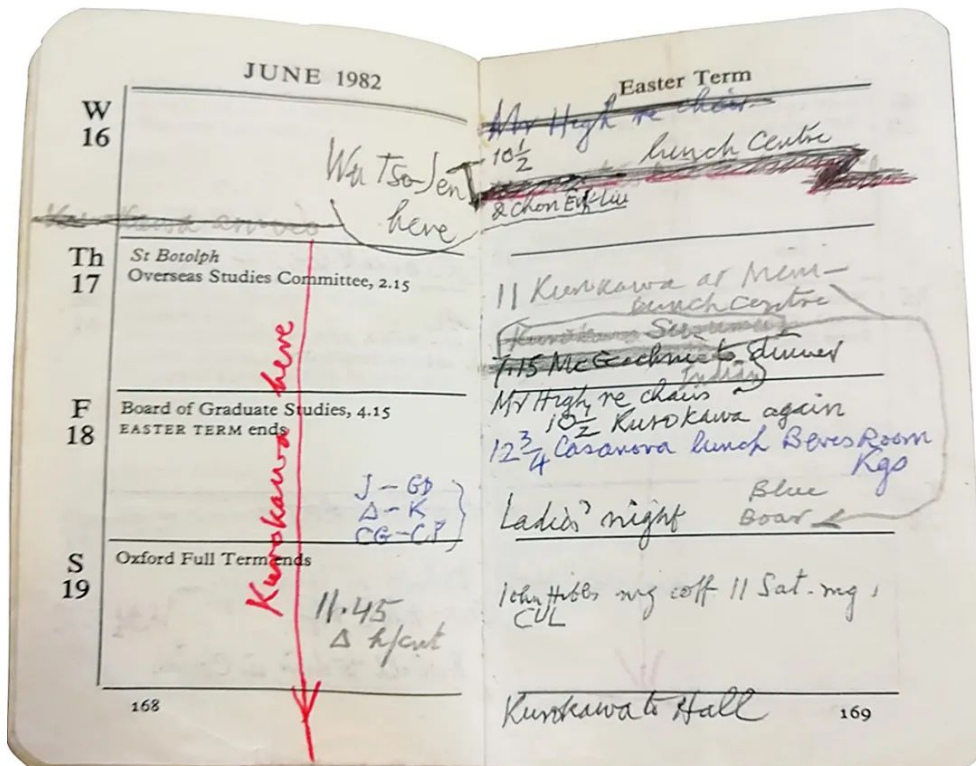 JUNE 1982
W
16
Wu Tso-Jen
here
Th
17
St Botolph
Overseas Studies Committee, 2.15
Kurokawa here
F
18
Board of Graduate Studies, 4.15
EASTER TERM ends
J – GD
Δ – K
CG – CP
S
19
Oxford Full Term ends
11.45
Δ h/cut
168
Easter Term
Mr High re chair
10½ lunch Centre
& Chon
11 Kurokawa at Mem–
lunch Centre
Kurokawa
7.15 McGeachie to dinner
Indian
Mr High re chairs
10½ Kurokawa again
12¾ Casanova lunch Beves Room
Kgs
Ladies' night
Blue
Boar
John mg coff 11 Sat. mg,
CUL
Kurokawa to Hall
169